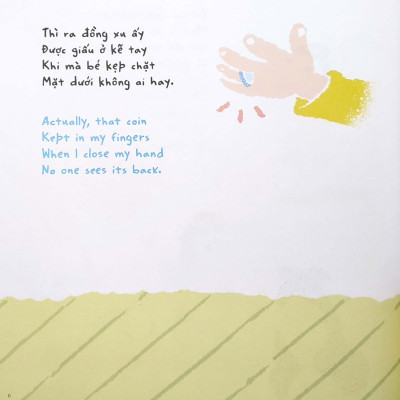 Thì ra đồng xu ấy
Được giấu ở kẽ tay
Khi mà bé kẹp chặt
Mặt dưới không ai hay.
Actually, that coin
Kept in my fingers
When I close my hand
No one sees its back.